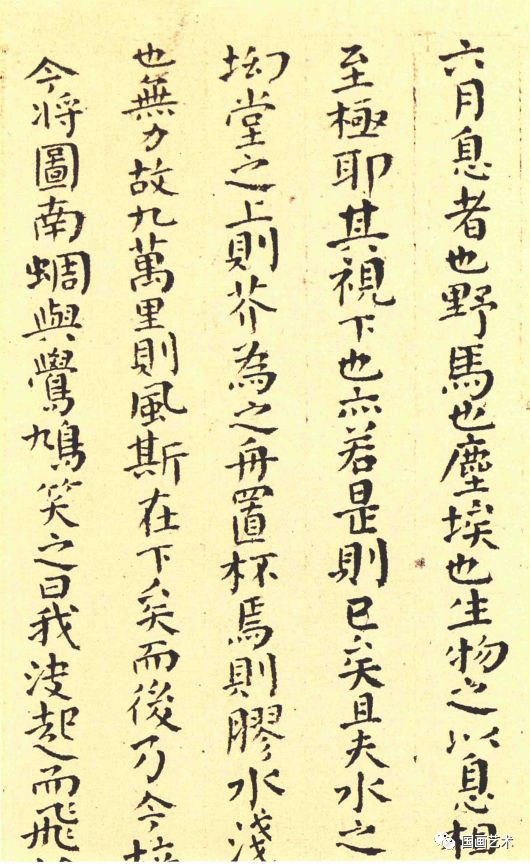 六月息者也野馬也塵埃也生物之以息相
至極耶其視下也亦若是則已矣且夫水之
坳堂之上則芥為之舟置杯焉則膠水淺
也無力故九萬里則風斯在下矣而後乃今培
今將圖南蜩與鷽鳩笑之曰我決起而飛
国画艺术